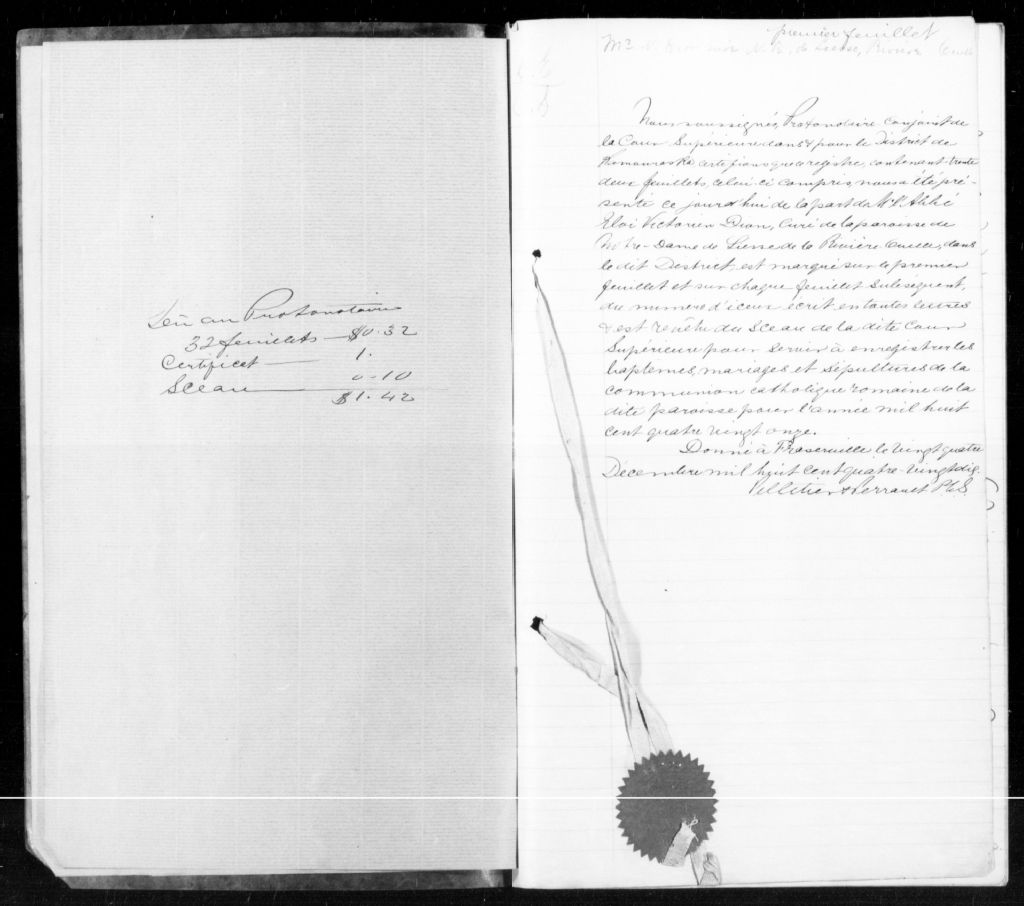 Dû au Protonotaire
32 feuillets — $0.32
Certificat — 1.
Sceau — 0-10
$1.42
premier feuillet
Nous soussignés, Protonotaire conjoint de
la Cour Supérieure dans & pour le District de
Kamouraska certifions que ce registre, contenant trente
deux feuillets, celui-ci compris, nous a été pré-
senté ce jourd'hui de la part de Mr l'Abbé
Eloi Victorien Dion, Curé de la paroisse de
Notre-Dame de Liesse de la Rivière Ouelle, dans
le dit District, est marqué sur le premier
feuillet et sur chaque feuillet subséquent,
du numéro d'iceux écrit en toutes lettres
& est revêtu du Sceau de la dite Cour
Supérieure pour servir à enregistrer les
baptêmes, mariages et sépultures de la
communion catholique romaine de la
dite paroisse pour l'année mil huit
cent quatre vingt onze.
Donné à Fraserville le vingt quatre
Décembre mil huit cent quatre-vingt dix.
Pelletier & Perrault P.C.S.